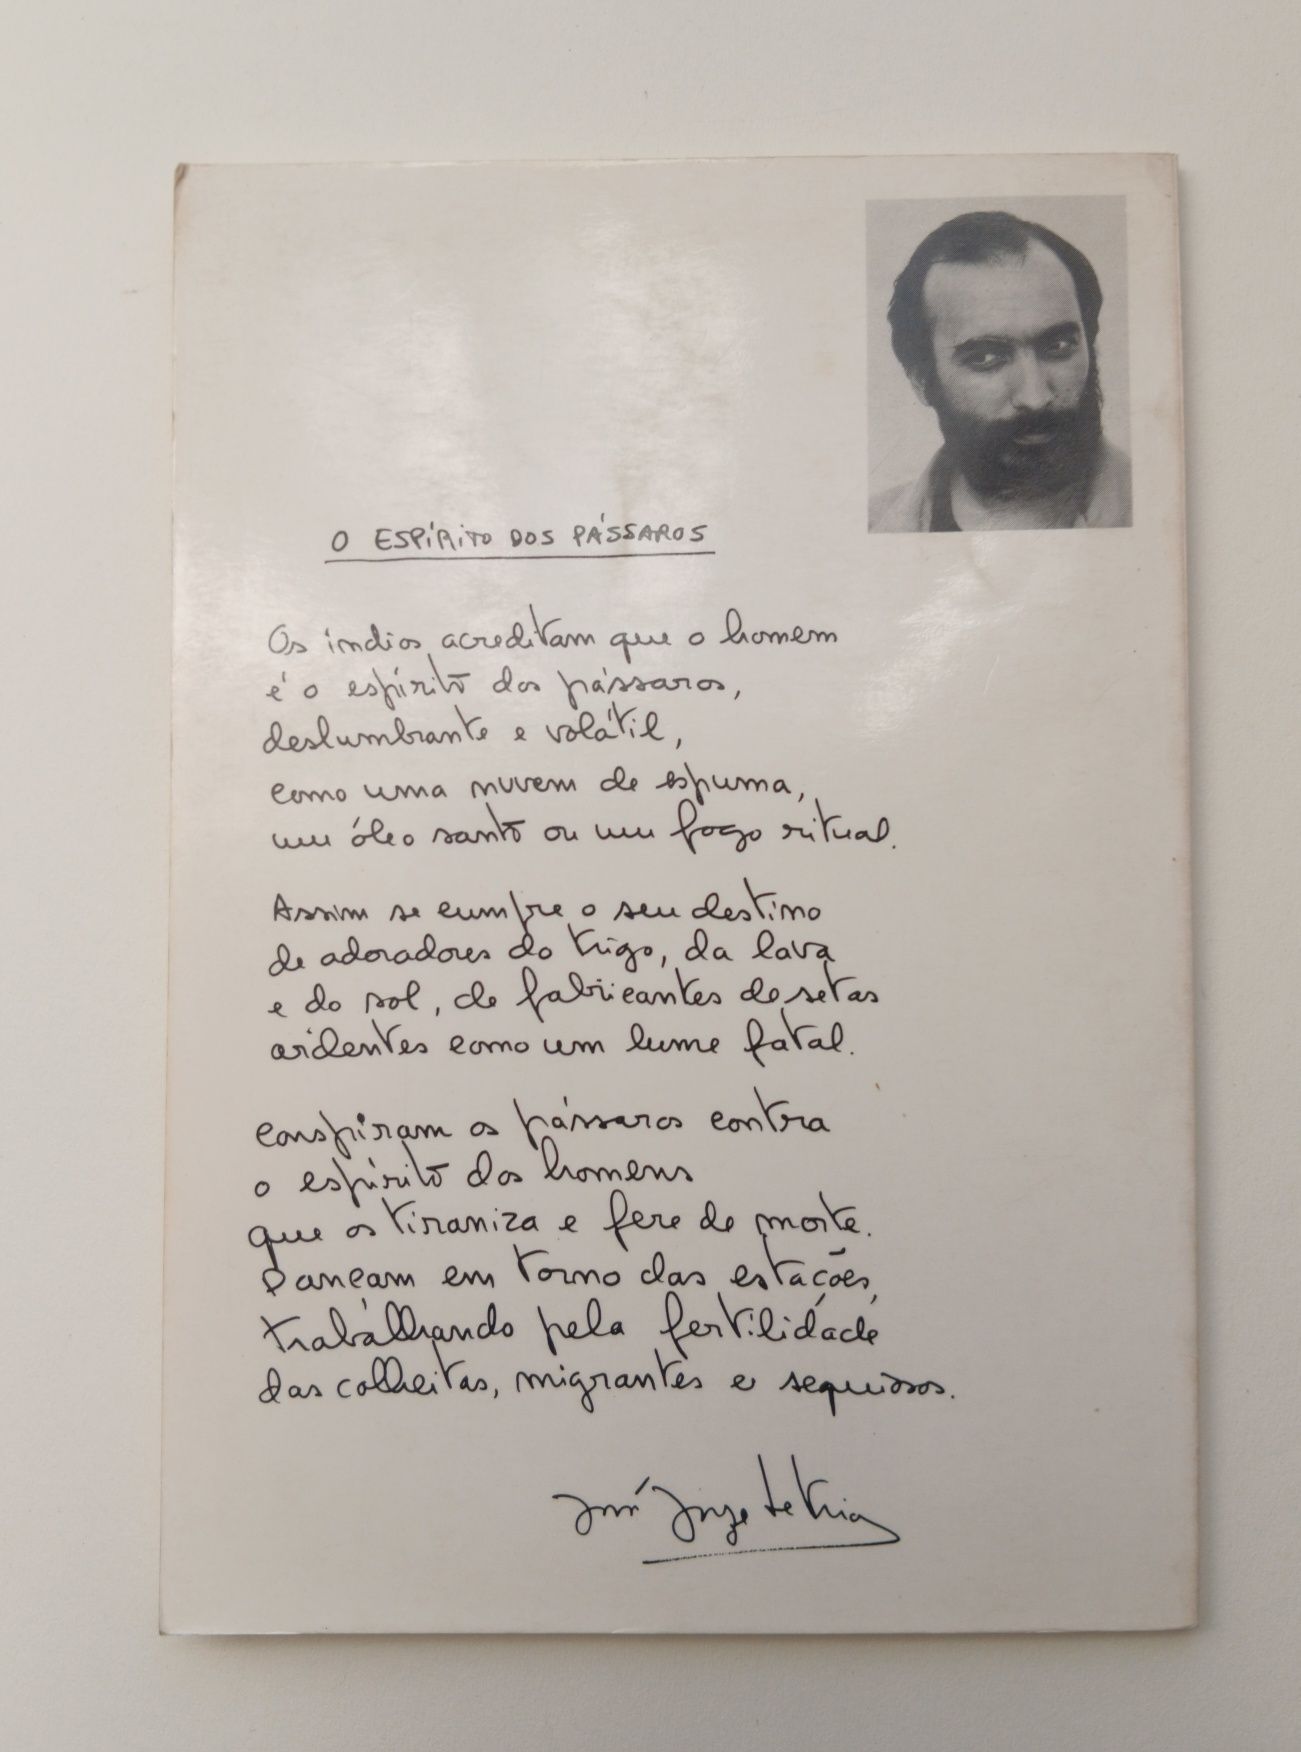 O ESPÍRITO DOS PÁSSAROS
Os índios acreditam que o homem
é o espírito dos pássaros,
deslumbrante e volátil,
como uma nuvem de espuma,
um óleo santo ou um fogo ritual.
Assim se cumpre o seu destino
de adoradores do trigo, da lava
e do sol, de fabricantes de setas
ardentes como um lume fatal.
Conspiram os pássaros contra
o espírito dos homens
que os tiraniza e fere de morte.
Dançam em torno das estações,
trabalhando pela fertilidade
das colheitas, migrantes e sequiosos.
José Jorge Letria